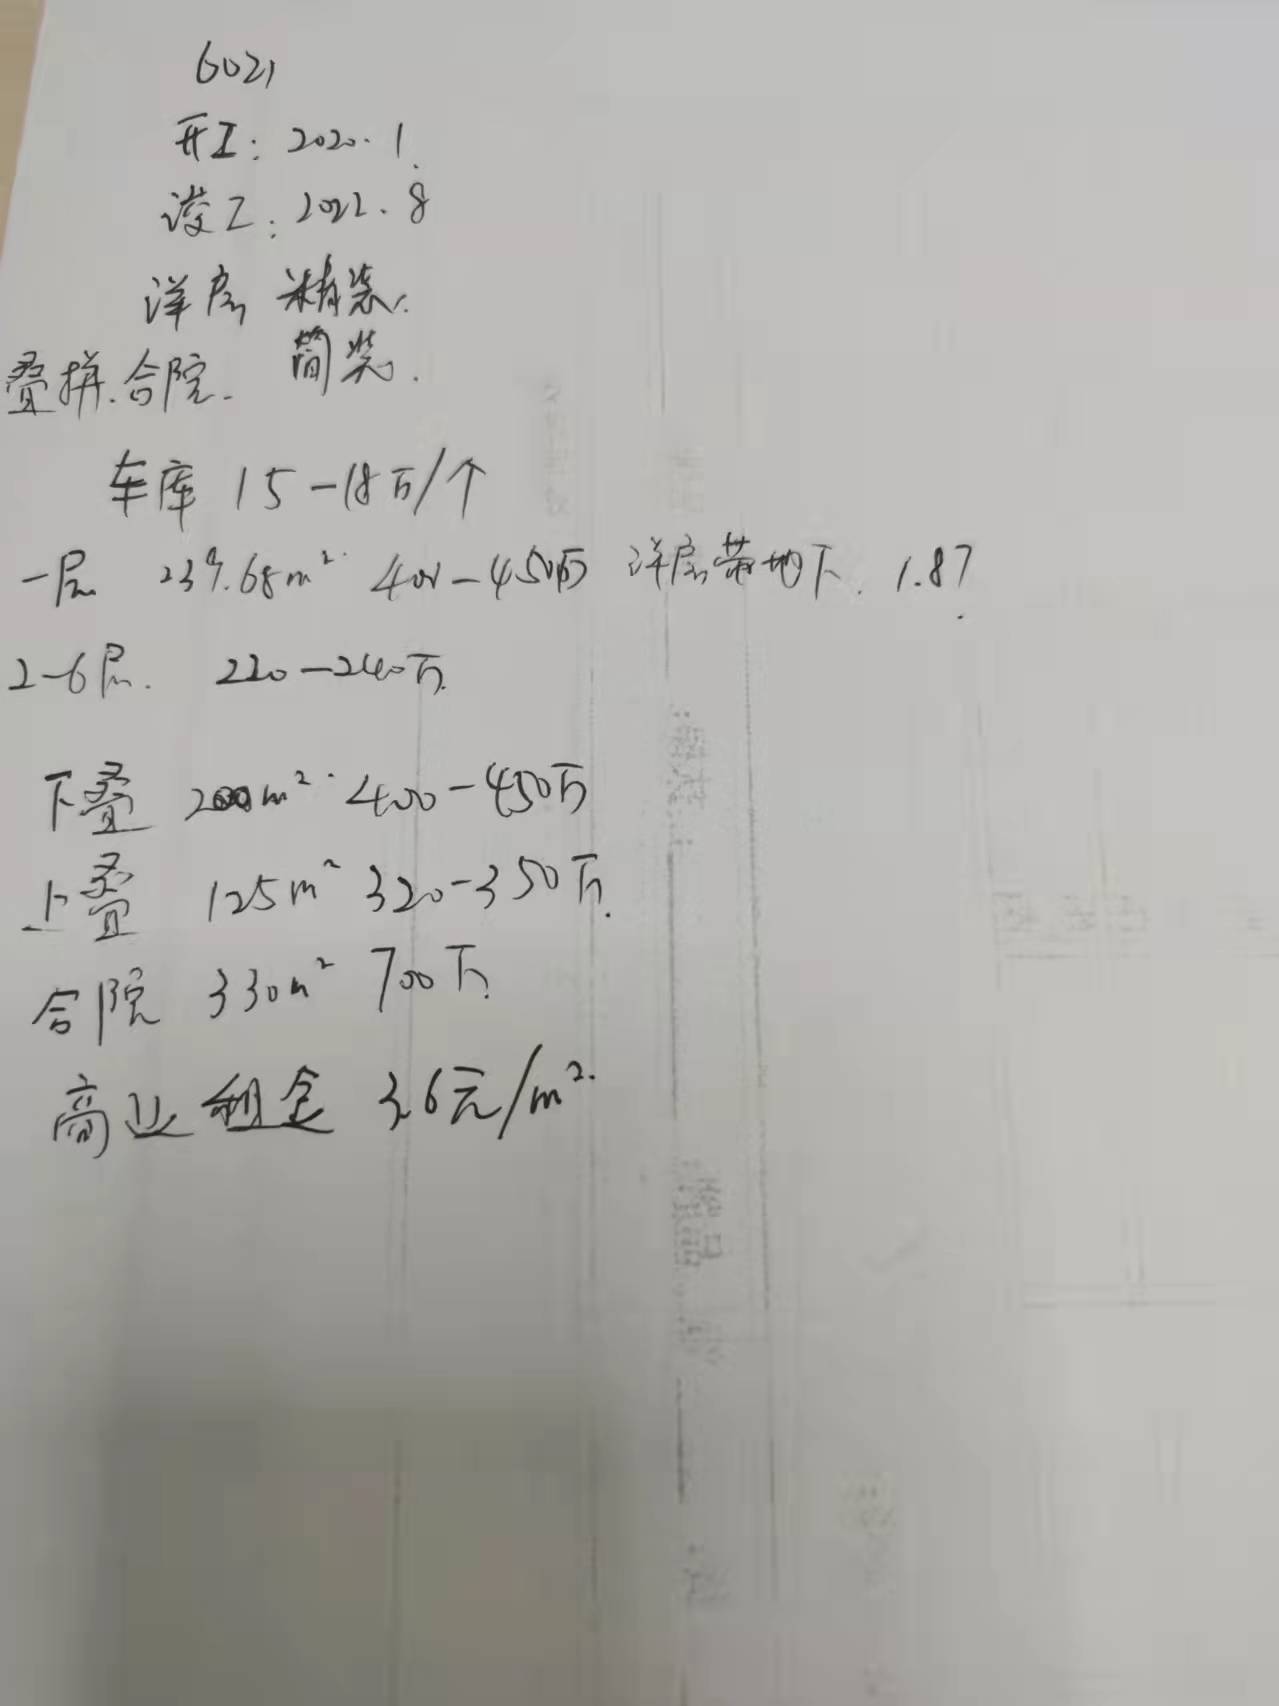 6021
开工: 2020.1.
竣工: 2022.8
洋房 精装.
叠拼.合院. 简装.
车库 15-18万/个
一层 239.68m² 400-450万 洋房带地下. 1.87
2-6层. 220-240万.
下叠 200m² 400-450万
上叠 125m² 320-350万.
合院 330m² 700万.
商业租金 36元/m².